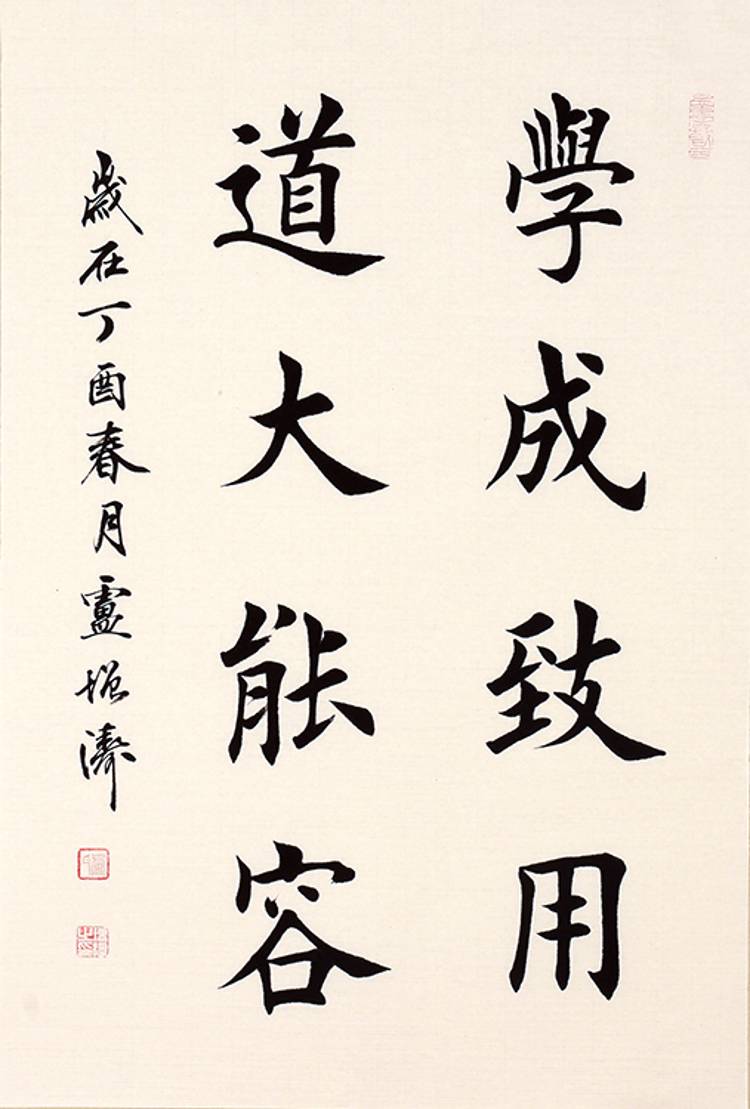 學成致用
道大能容
歲在丁酉春月盧增濤